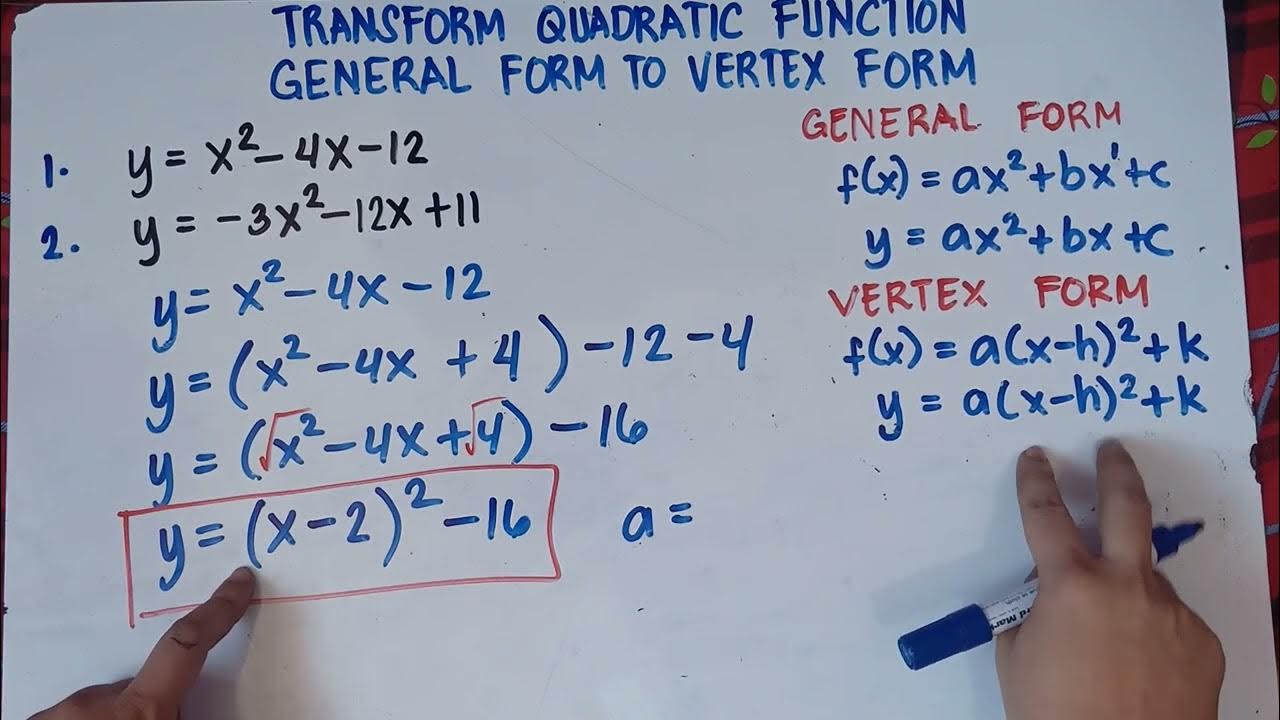 TRANSFORM QUADRATIC FUNCTION
GENERAL FORM TO VERTEX FORM
1. y = x² – 4x – 12
2. y = –3x² – 12x + 11
y = x² – 4x – 12
y = (x² – 4x + 4) – 12 – 4
y = (√x² – 4x + √4) – 16
y = (x – 2)² – 16
a =
GENERAL FORM
f(x) = ax² + bx¹ + c
y = ax² + bx + c
VERTEX FORM
f(x) = a(x–h)² + k
y = a(x–h)² + k